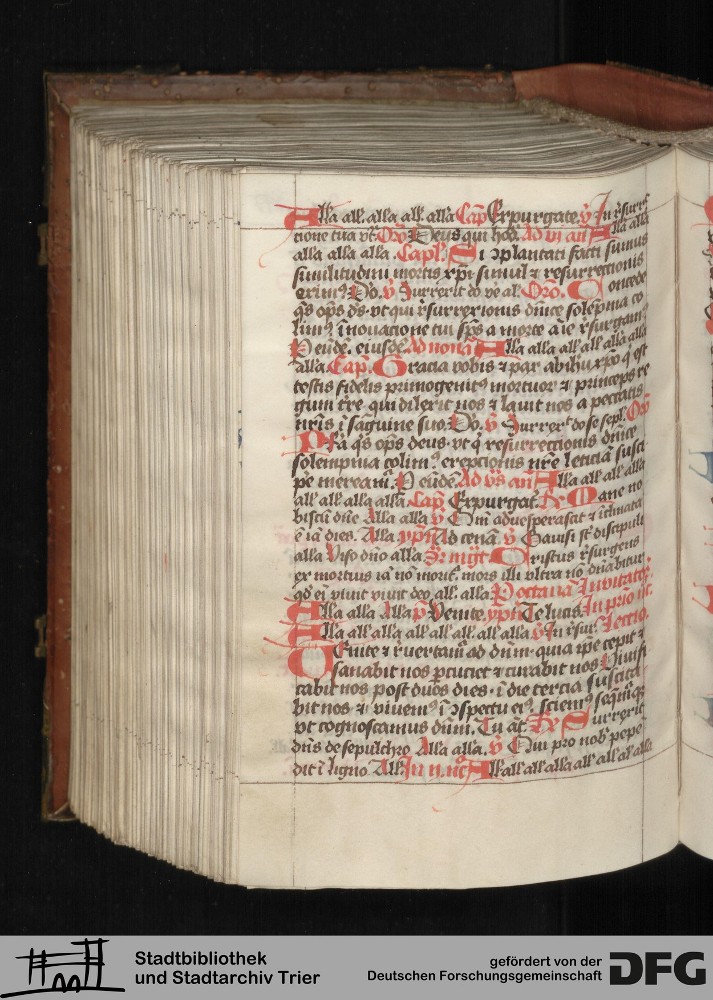 Alla all. alla all. alla Cap Expurgate. v In resurre
ctione tua vt Oro Deus qui hod. Ad vi an Alla alla
alla alla alla. Capl. Si oplantati facti sumus
similitudini mortis xpi simul & resurrectionis
erim9 Do. v Surrexit do ve al. Oro. Concede
qs ops ds. vt qui resurrexionis dnice solempnia co
lim9 inouacione tui sps a morte aie resurgam9
P eunde. eiusde Ad nona Alla alla all all alla alla
alla. Cap. Gracia vobis & pax ab ihu xpo q est
testis fidelis primogenit9 mortuor & princeps re
gum tre. qui dilexit nos & lauit nos a peccatis
nris i saguine suo. Do. v Surrex do se sepl. Oro
Psta qs ops deus. vt q resurrectionis dnice
solempnia colim9. ereptionis nre leticia susci
pe meream. P eunde Ad vs an Alla all all alla
all all alla alla Cap Expurgat. Re Mane no
biscu dne Alla alla v Qm aduesperascit & iclinata
e ia dies. Alla ypn Ad cena v Gauisi st discipuli
alla Viso dno alla Sr mgt Cristus resurgens
ex mortuis ia no morit. mors illi vltra no dnabitur
qd ei viuit viuit deo all. alla P octaua Inuitator.
Alla alla Alla p Venite. ypn Te lucis. In prio nc.
Alla all alla all all all. all alla v In resur. Lectio.
Venite & reuertam ad dnm. quia ipe cepit &
sanabit nos percuciet & curabit nos Viuifi
cabit nos post duos dies. i die tercia suscita
bit nos & viuem9 i ospectu ei9. sciem9 sequiq
vt cognoscamus dnm. Tu at. Re Surrexit
dns de sepulchro Alla alla. v Qui pro nob pepe
dit i ligno All. In ii. nc Alla all all alla all all alla
Stadtbibliothek
und Stadtarchiv Trier
gefördert von der
Deutschen Forschungsgemeinschaft
DFG